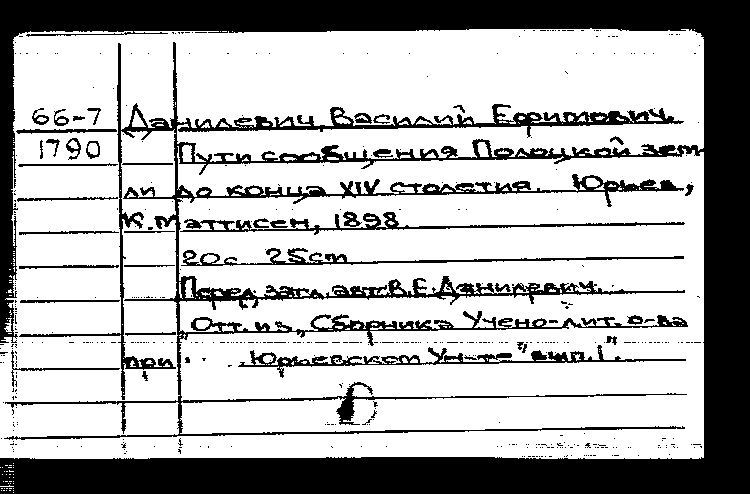 66-7 Данилевич, Василий Ефимович.
1790 Пути сообщения Полоцкой зем-
ли до конца XIV столетия. Юрьев,
К. Маттисен, 1898.
20с 25cm
Перед загл. авт: В.Е. Данилевич.
"Отт. из „Сборника Учено-лит. о-ва
при Юрьевском Ун-те" вып. I".